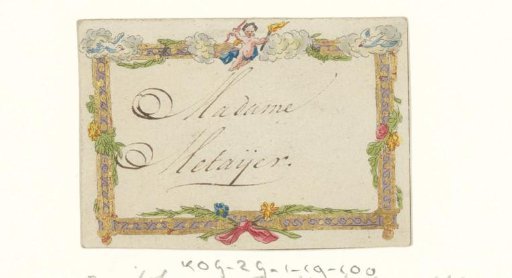 Madame
Metaijer.
KOG-ZG-1-19-100